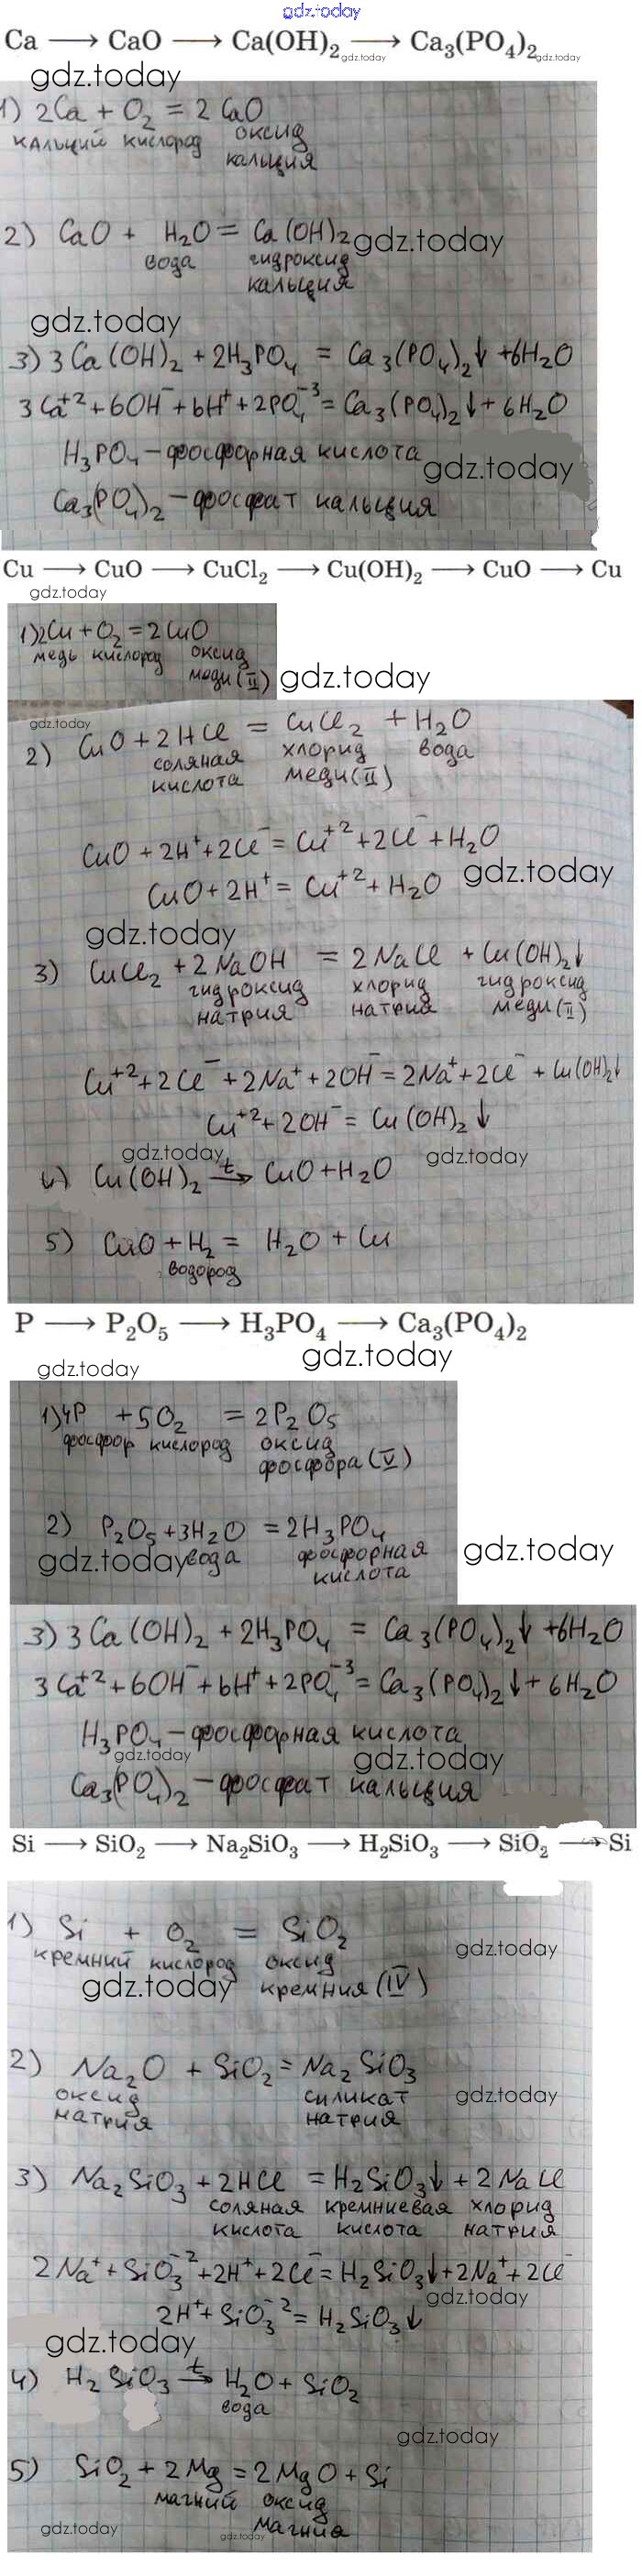 gdz.today
Ca ⟶ CaO ⟶ Ca(OH)₂ ⟶ Ca₃(PO₄)₂
gdz.today gdz.today
gdz.today
1) 2Ca + O₂ = 2 CaO
кальций кислород оксид
кальция
2) CaO + H₂O = Ca(OH)₂ gdz.today
вода гидроксид
кальция
gdz.today
3) 3Ca(OH)₂ + 2H₃PO₄ = Ca₃(PO₄)₂↓ + 6H₂O
3Ca⁺² + 6OH⁻ + 6H⁺ + 2PO₄⁻³ = Ca₃(PO₄)₂↓ + 6H₂O
H₃PO₄ – фосфорная кислота
gdz.today
Ca₃(PO₄)₂ – фосфат кальция
Cu ⟶ CuO ⟶ CuCl₂ ⟶ Cu(OH)₂ ⟶ CuO ⟶ Cu
gdz.today
1) 2Cu + O₂ = 2CuO
медь кислород оксид
меди (II) gdz.today
gdz.today
2) CuO + 2HCl = CuCl₂ + H₂O
соляная хлорид вода
кислота меди(II)
CuO + 2H⁺ + 2Cl⁻ = Cu⁺² + 2Cl⁻ + H₂O
CuO + 2H⁺ = Cu⁺² + H₂O gdz.today
gdz.today
3) CuCl₂ + 2NaOH = 2NaCl + Cu(OH)₂↓
гидроксид хлорид гидроксид
натрия натрия меди(II)
Cu⁺² + 2Cl⁻ + 2Na⁺ + 2OH⁻ = 2Na⁺ + 2Cl⁻ + Cu(OH)₂↓
Cu⁺² + 2OH⁻ = Cu(OH)₂↓
gdz.today gdz.today
4) Cu(OH)₂ →t CuO + H₂O
5) CuO + H₂ = H₂O + Cu
водород
P ⟶ P₂O₅ ⟶ H₃PO₄ ⟶ Ca₃(PO₄)₂
gdz.today gdz.today
1) 4P + 5O₂ = 2P₂O₅
фосфор кислород оксид
фосфора (V)
2) P₂O₅ + 3H₂O = 2H₃PO₄
gdz.today вода фосфорная gdz.today
кислота
3) 3Ca(OH)₂ + 2H₃PO₄ = Ca₃(PO₄)₂↓ + 6H₂O
3Ca⁺² + 6OH⁻ + 6H⁺ + 2PO₄⁻³ = Ca₃(PO₄)₂↓ + 6H₂O
H₃PO₄ – фосфорная кислота
gdz.today gdz.today
Ca₃(PO₄)₂ – фосфат кальция
Si ⟶ SiO₂ ⟶ Na₂SiO₃ ⟶ H₂SiO₃ ⟶ SiO₂ ⟶ Si
1) Si + O₂ = SiO₂
кремний кислород оксид gdz.today
gdz.today кремния (IV)
2) Na₂O + SiO₂ = Na₂SiO₃
оксид силикат gdz.today
натрия натрия
3) Na₂SiO₃ + 2HCl = H₂SiO₃↓ + 2NaCl
соляная кремниевая хлорид
кислота кислота натрия
2Na⁺ + SiO₃⁻² + 2H⁺ + 2Cl⁻ = H₂SiO₃↓ + 2Na⁺ + 2Cl⁻
gdz.today
2H⁺ + SiO₃⁻² = H₂SiO₃↓
gdz.today
4) H₂SiO₃ →t H₂O + SiO₂
вода
gdz.today
5) SiO₂ + 2Mg = 2MgO + Si
магний оксид
магния
gdz.today gdz.today